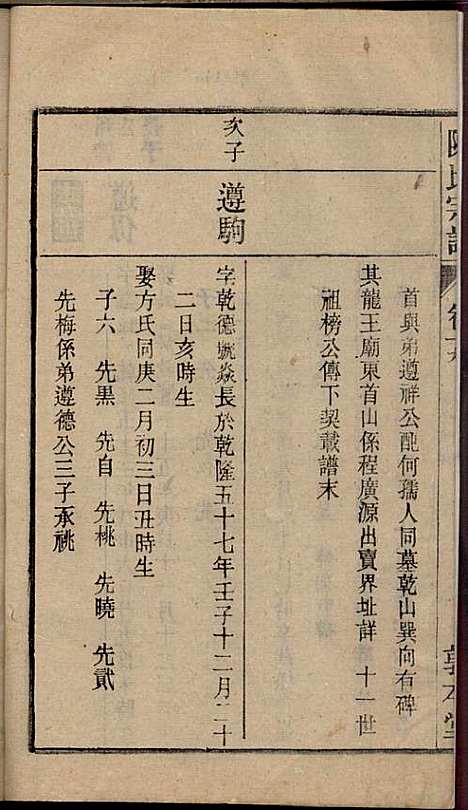 陳氏宗譜
敦本堂
首與弟遵祥公配何孺人同墓乾山巽向有碑
其龍王廟東首山係程廣源出賣界址詳十一世
祖榜公傳下契載譜末
次子
遵駒
字乾德號焱長於乾隆五十七年壬子十二月二十
二日亥時生
娶方氏同庚二月初三日丑時生
子六 先黒 先自 先桃 先曉 先貳
先梅係弟遵德公三子承祧